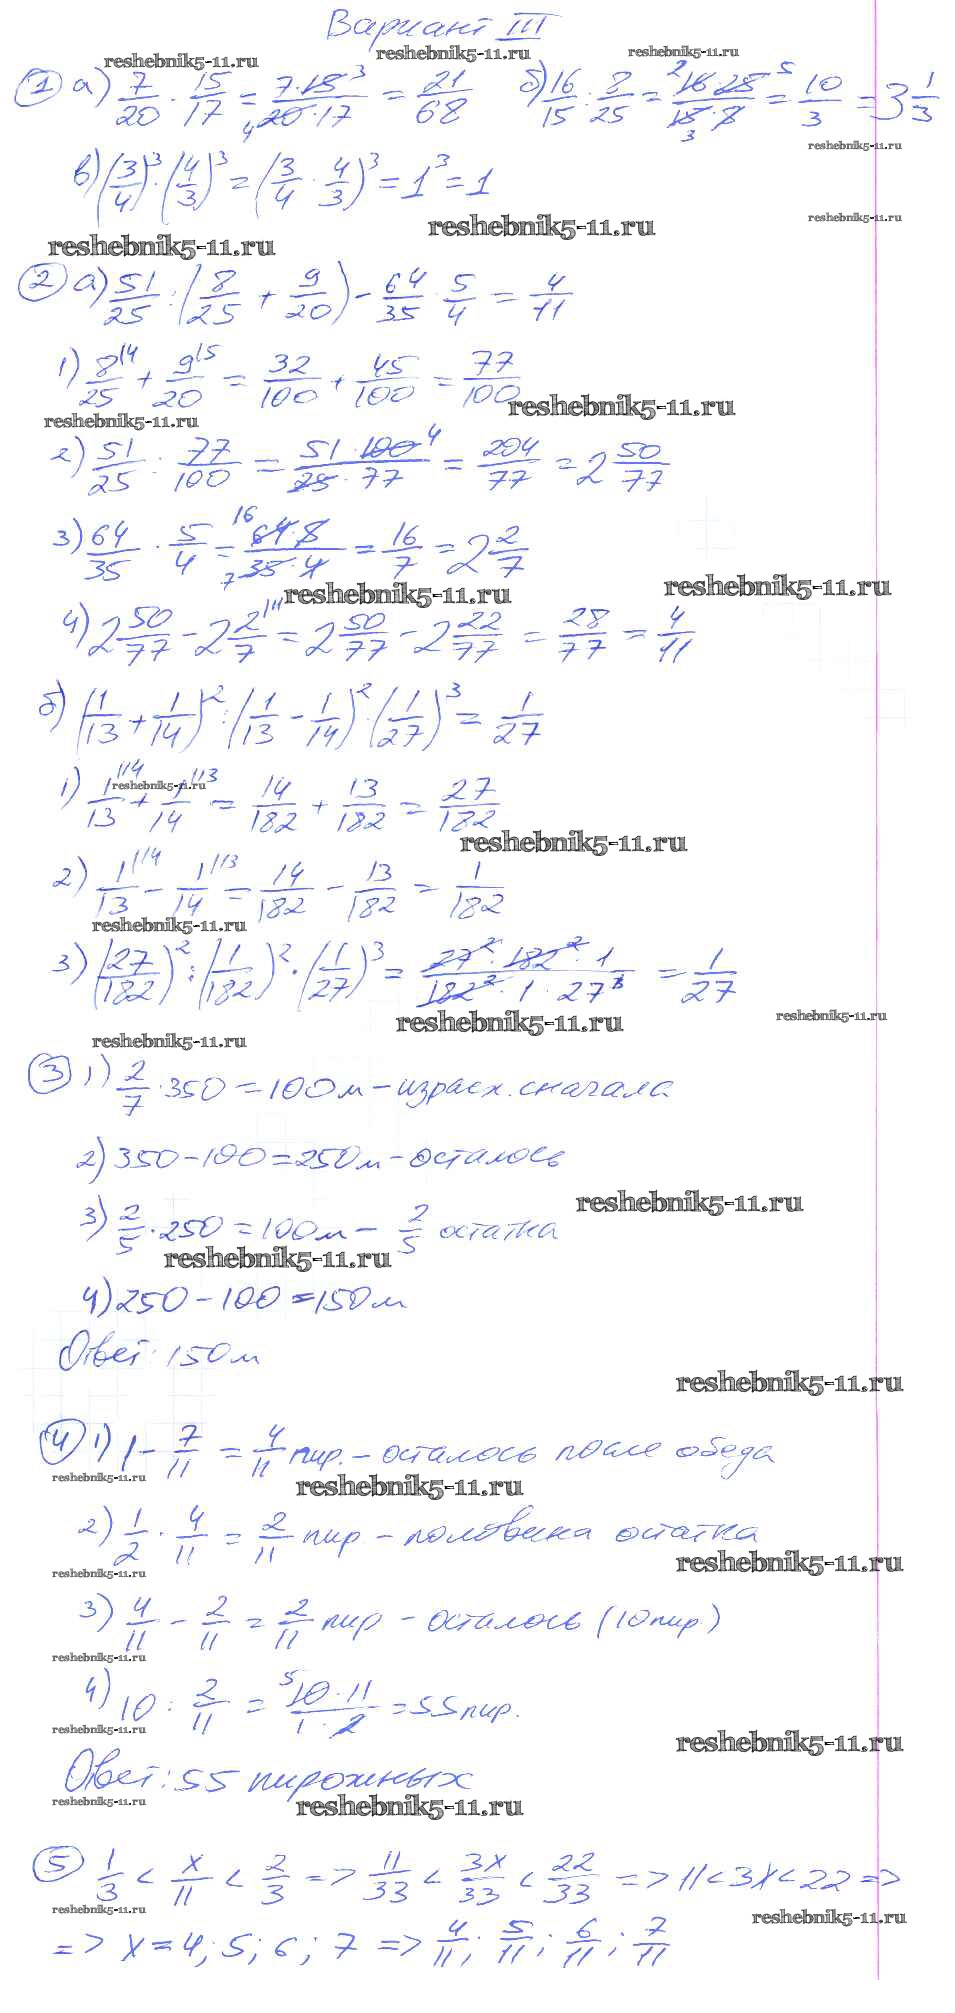 Вариант III
reshebnik5-11.ru reshebnik5-11.ru reshebnik5-11.ru
① а) 7/20 · 15/17 = 7·15/20·17 = 21/68 б) 16/15 : 8/25 = 16·25/15·8 = 10/3 = 3 1/3
reshebnik5-11.ru
в) (3/4)³ · (4/3)³ = (3/4 · 4/3)³ = 1³ = 1
reshebnik5-11.ru reshebnik5-11.ru reshebnik5-11.ru
② а) 51/25 : (8/25 + 9/20) - 64/35 · 5/4 = 4/11
1) 8/25 + 9/20 = 32/100 + 45/100 = 77/100
reshebnik5-11.ru reshebnik5-11.ru
2) 51/25 : 77/100 = 51·100/25·77 = 204/77 = 2 50/77
3) 64/35 · 5/4 = 64·5/35·4 = 16/7 = 2 2/7
reshebnik5-11.ru reshebnik5-11.ru
4) 2 50/77 - 2 2/7 = 2 50/77 - 2 22/77 = 28/77 = 4/11
б) (1/13 + 1/14)² : (1/13 - 1/14)² · (1/27)³ = 1/27
1) 1/13 + 1/14 = 14/182 + 13/182 = 27/182
reshebnik5-11.ru reshebnik5-11.ru
2) 1/13 - 1/14 = 14/182 - 13/182 = 1/182
reshebnik5-11.ru
3) (27/182)² : (1/182)² · (1/27)³ = 27²·182²·1/182²·1·27³ = 1/27
reshebnik5-11.ru reshebnik5-11.ru reshebnik5-11.ru
③ 1) 2/7 · 350 = 100 м - израсх. сначала
2) 350 - 100 = 250 м - осталось
reshebnik5-11.ru
3) 2/5 · 250 = 100 м - 2/5 остатка
reshebnik5-11.ru
4) 250 - 100 = 150 м
Ответ: 150 м
reshebnik5-11.ru
④ 1) 1 - 7/11 = 4/11 пир. - осталось после обеда
reshebnik5-11.ru reshebnik5-11.ru
2) 1/2 · 4/11 = 2/11 пир - половина остатка
reshebnik5-11.ru reshebnik5-11.ru
3) 4/11 - 2/11 = 2/11 пир - осталось (10 пир)
reshebnik5-11.ru
4) 10 : 2/11 = 10·11/1·2 = 55 пир.
reshebnik5-11.ru reshebnik5-11.ru
Ответ: 55 пирожных
reshebnik5-11.ru reshebnik5-11.ru
⑤ 1/3 < x/11 < 2/3 => 11/33 < 3x/33 < 22/33 => 11 < 3x < 22 =>
reshebnik5-11.ru reshebnik5-11.ru
=> x = 4; 5; 6; 7 => 4/11; 5/11; 6/11; 7/11